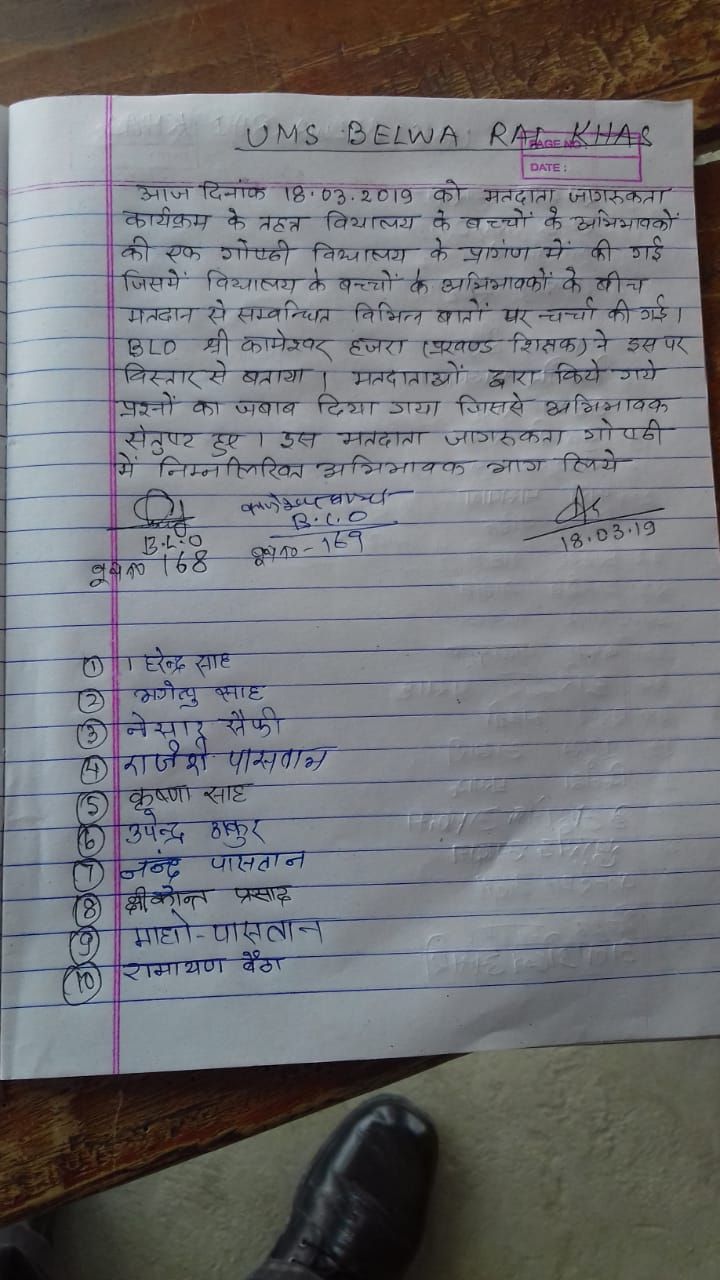 UMS BELWA RAI KHAS
PAGE NO.
DATE :
आज दिनांक 18.03.2019 को मतदाता जागरुकता
कार्यक्रम के तहत विद्यालय के बच्चों के अभिभावकों
की एक गोष्ठी विद्यालय के प्रागंण में की गई
जिसमें विद्यालय के बच्चों के अभिभावकों के बीच
मतदान से सम्बन्धित विभिन्न बातों पर चर्चा की गई।
BLO श्री कामेश्वर हजरा (प्रखण्ड शिक्षक) ने इस पर
विस्तार से बताया। मतदाताओं द्वारा किये गये
प्रश्नों का जबाब दिया गया जिससे अभिभावक
संतुष्ट हुए। इस मतदाता जागरुकता गोष्ठी
में निम्नलिखित अभिभावक भाग लिये
B.L.O B.L.O 18.03.19
बूथ न० 168 बूथ न० - 169
1 हरेन्द्र साह
2 साह
3 नेसार सैफी
4 राजेश पासवान
5 कृष्णा साह
6 उपेन्द्र ठाकुर
7 पासवान
8 श्रीकान्त प्रसाद
9 माधो-पासवान
10 रामायण बैठा